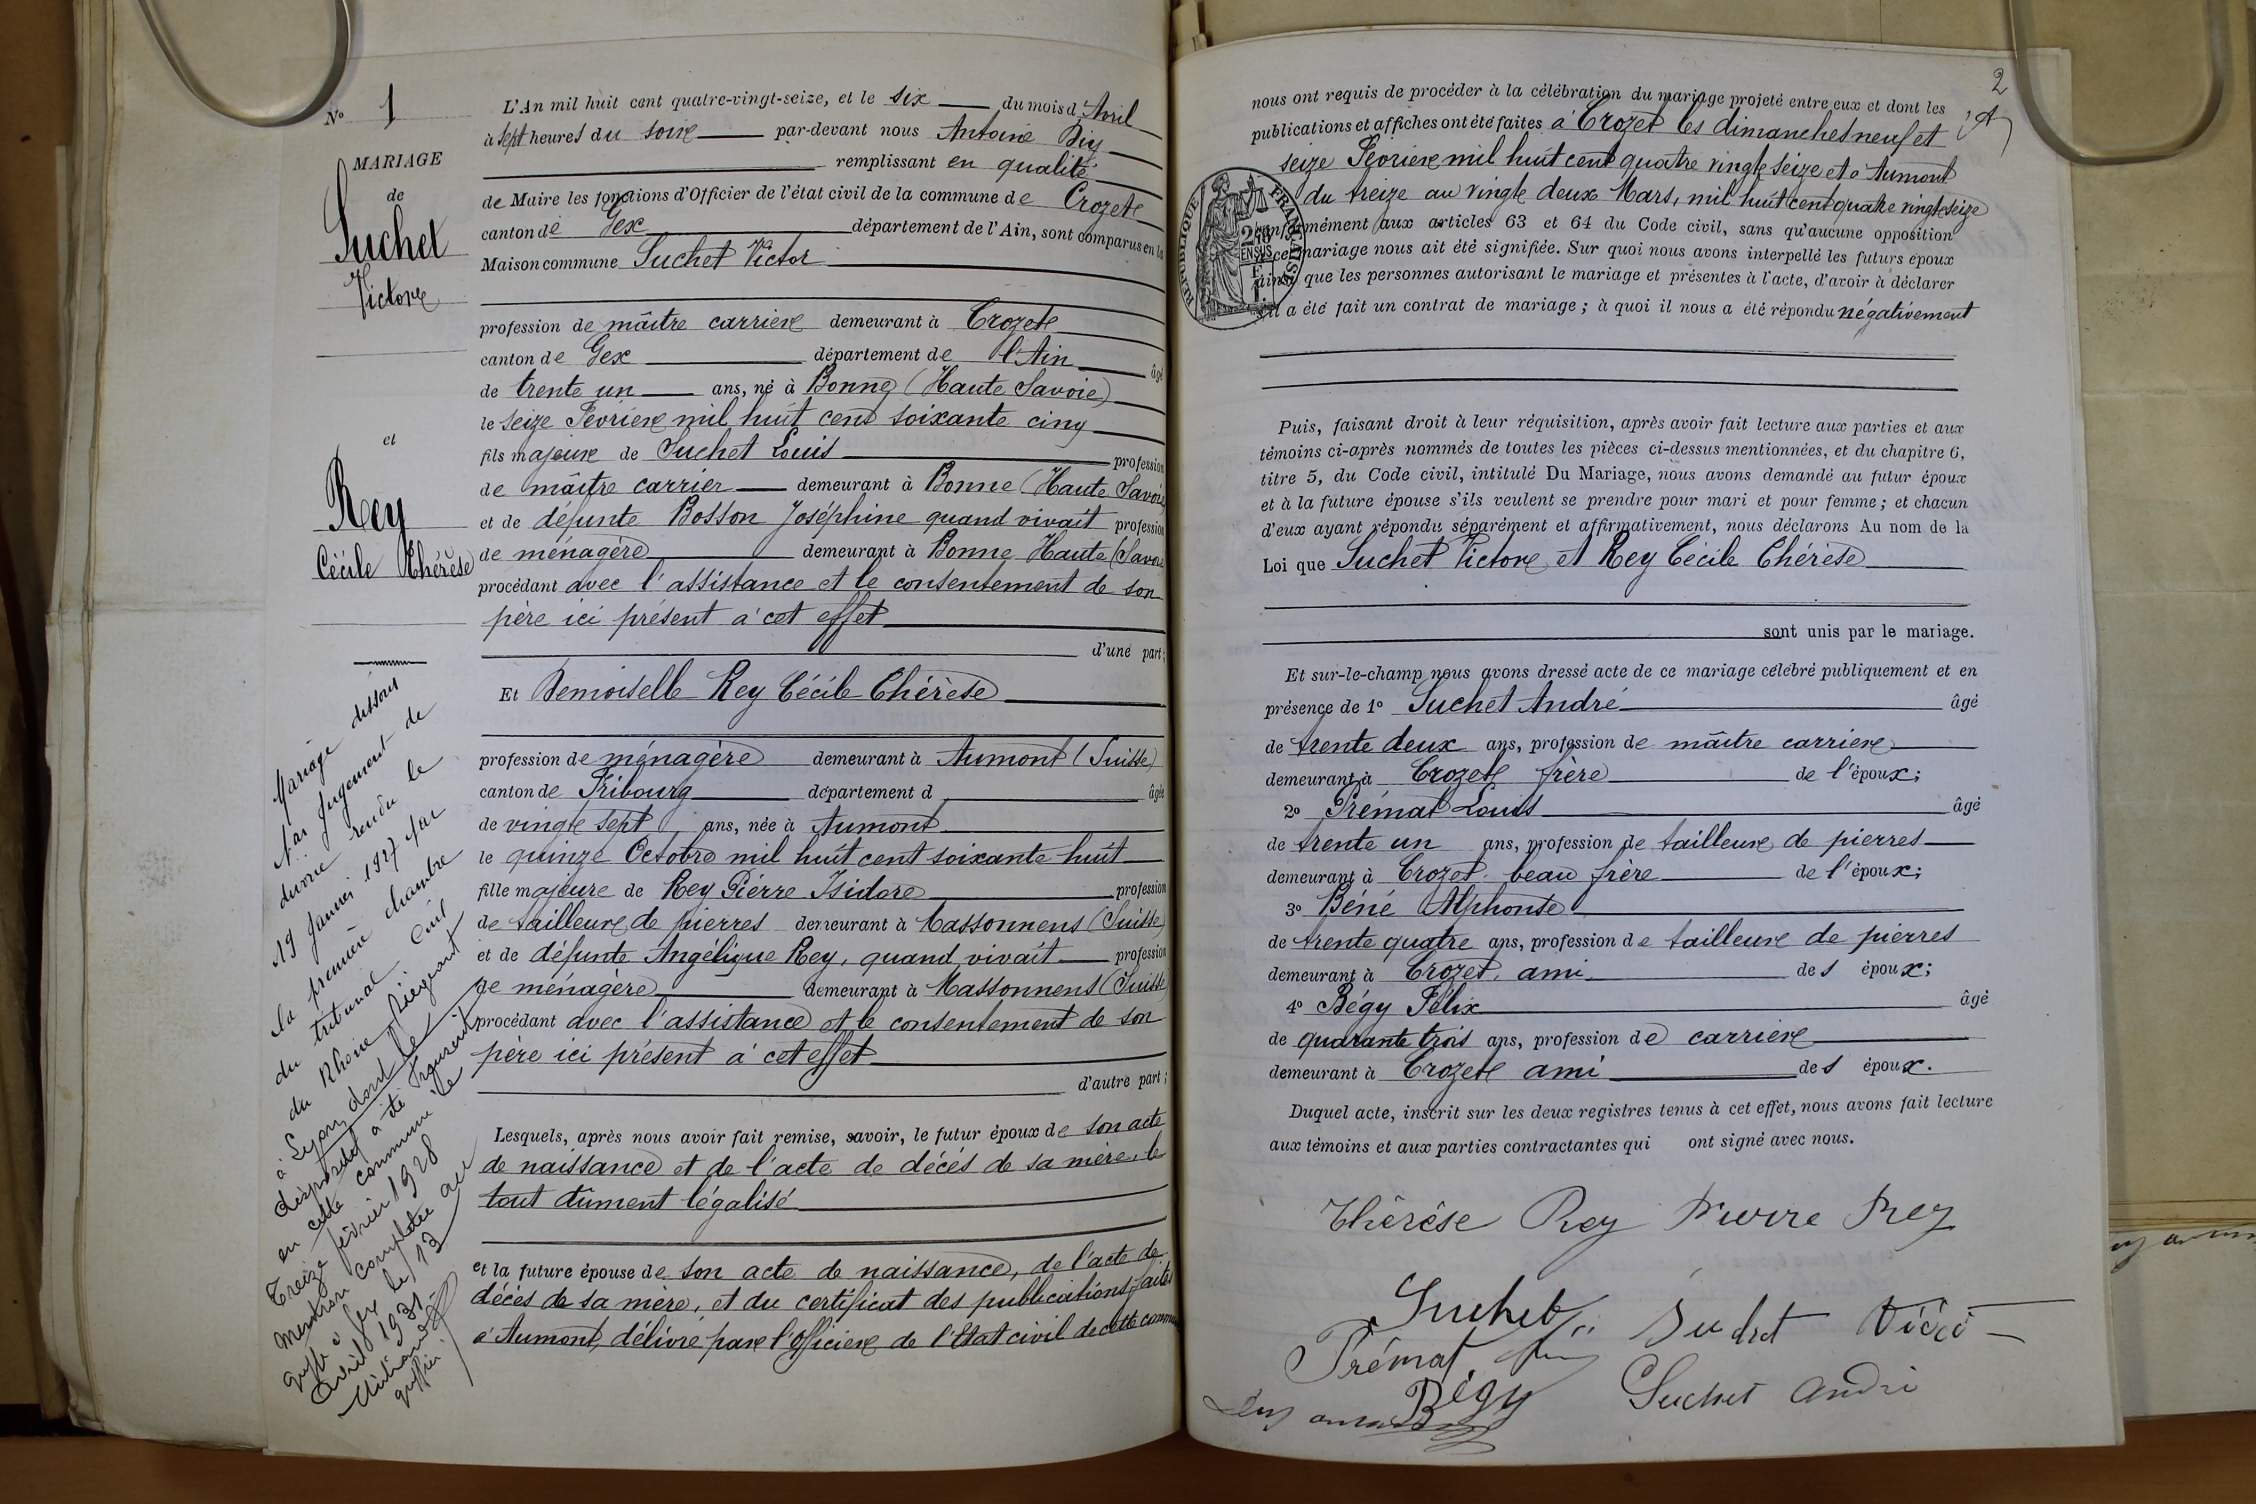 No 1
MARIAGE
de
Suchet
Victor
et
Rey
Cécile Thérèse
Mariage dissous
par Jugement de
divorce rendu le
19 Janvier 1927 par
la première chambre
du tribunal civil
du Rhône siégeant
à Lyon, dont le
dispositif a été transcrit
en cette commune le
Treize février 1928
Mention complétée au
greffe à Gex le 13
Avril 1931
greffier
L'An mil huit cent quatre-vingt-seize, et le six du mois d'Avril
à sept heures du soir par-devant nous Antoine
remplissant en qualité
de Maire les fonctions d'Officier de l'état civil de la commune de Crozet
canton de Gex département de l'Ain, sont comparus en la
Maison commune Suchet Victor
profession de maître carrier demeurant à Crozet
canton de Gex département de l'Ain âgé
de trente un ans, né à Bonne (Haute Savoie)
le seize Février mil huit cent soixante cinq
fils majeur de Suchet Louis profession
de maître carrier demeurant à Bonne (Haute Savoie
et de défunte Bosson Joséphine quand vivait profession
de ménagère demeurant à Bonne Haute (Savoie
procédant avec l'assistance et le consentement de son
père ici présent à cet effet
d'une part;
Et Demoiselle Rey Cécile Thérèse
profession de ménagère demeurant à Aumont (Suisse)
canton de Fribourg département d âgée
de vingt sept ans, née à Aumont
le quinze Octobre mil huit cent soixante huit
fille majeure de Rey Pierre Isidore profession
de tailleur de pierres demeurant à Massonnens (Suisse)
et de défunte Angélique Rey, quand vivait profession
de ménagère demeurant à Massonnens (Suisse
procédant avec l'assistance et le consentement de son
père ici présent à cet effet
d'autre part;
Lesquels, après nous avoir fait remise, savoir, le futur époux de son acte
de naissance et de l'acte de décès de sa mère, le
tout dûment légalisé
et la future épouse de son acte de naissance, de l'acte de
décès de sa mère, et du certificat des publications faites
à Aumont, délivré par l'Officier de l'Etat civil de cette commune
2
nous ont requis de procéder à la célébration du mariage projeté entre eux et dont les
publications et affiches ont été faites à Crozet les dimanches neuf et
seize Février mil huit cent quatre vingt seize et à Aumont
du treize au vingt deux Mars, mil huit cent quatre vingt seize
conformément aux articles 63 et 64 du Code civil, sans qu'aucune opposition
à ce mariage nous ait été signifiée. Sur quoi nous avons interpellé les futurs époux
ainsi que les personnes autorisant le mariage et présentes à l'acte, d'avoir à déclarer
s'il a été fait un contrat de mariage; à quoi il nous a été répondu négativement
RÉPUBLIQUE FRANÇAISE
Puis, faisant droit à leur réquisition, après avoir fait lecture aux parties et aux
témoins ci-après nommés de toutes les pièces ci-dessus mentionnées, et du chapitre 6,
titre 5, du Code civil, intitulé Du Mariage, nous avons demandé au futur époux
et à la future épouse s'ils veulent se prendre pour mari et pour femme; et chacun
d'eux ayant répondu séparément et affirmativement, nous déclarons Au nom de la
Loi que Suchet Victor et Rey Cécile Thérèse
sont unis par le mariage.
Et sur-le-champ nous avons dressé acte de ce mariage célébré publiquement et en
présence de 1o Suchet André âgé
de trente deux ans, profession de maître carrier
demeurant à Crozet frère de l'époux;
2o Prémat Louis âgé
de trente un ans, profession de tailleur de pierres
demeurant à Crozet beau frère de l'époux;
3o Béné Alphonse
de trente quatre ans, profession de tailleur de pierres
demeurant à Crozet, ami des époux;
4o Bégy Félix âgé
de quarante trois ans, profession de carrier
demeurant à Crozet ami des époux.
Duquel acte, inscrit sur les deux registres tenus à cet effet, nous avons fait lecture
aux témoins et aux parties contractantes qui ont signé avec nous.
Thérèse Rey Pierre Rey
Suchet
Prémat
Bégy
Suchet André